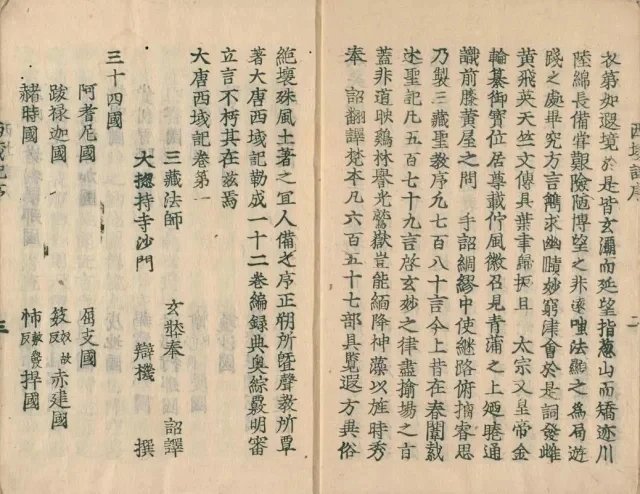 衣第如遐境於是背玄灞而延望指葱山而矯迹川
陸綿長備嘗艱險陋博望之非遠嗤法顯之爲局遊
踐之處畢究方言鐫求幽賾妙窮津會於是詞發雌
黃飛英天竺文傳貝葉聿歸振旦 太宗文皇帝金
輪纂御寶位居尊載佇風徽召見青蒲之上廼睠通
識前膝黃屋之間 手詔綢繆中使繼路俯摛睿思
乃製三藏聖教序凡七百八十言今上昔在春闈裁
述聖記凡五百七十九言啓玄妙之津盡揄揚之旨
蓋非道映鷄林譽光鷲嶽豈能緬降神藻以旌時秀
奉 詔翻譯梵本凡六百五十七部具覽遐方異俗
絕壤殊風土著之宜人備之序正朔所暨聲教所覃
著大唐西域記勒成一十二卷編録典奧綜覈明審
立言不朽其在兹焉
大唐西域記卷第一
三藏法師 玄奘奉 詔譯
大揔持寺沙門 辯機 撰
三十四國
阿耆尼國 屈支國
跋禄迦國 笯奴故反赤建國
赭時國 㤄敷發反捍國
三